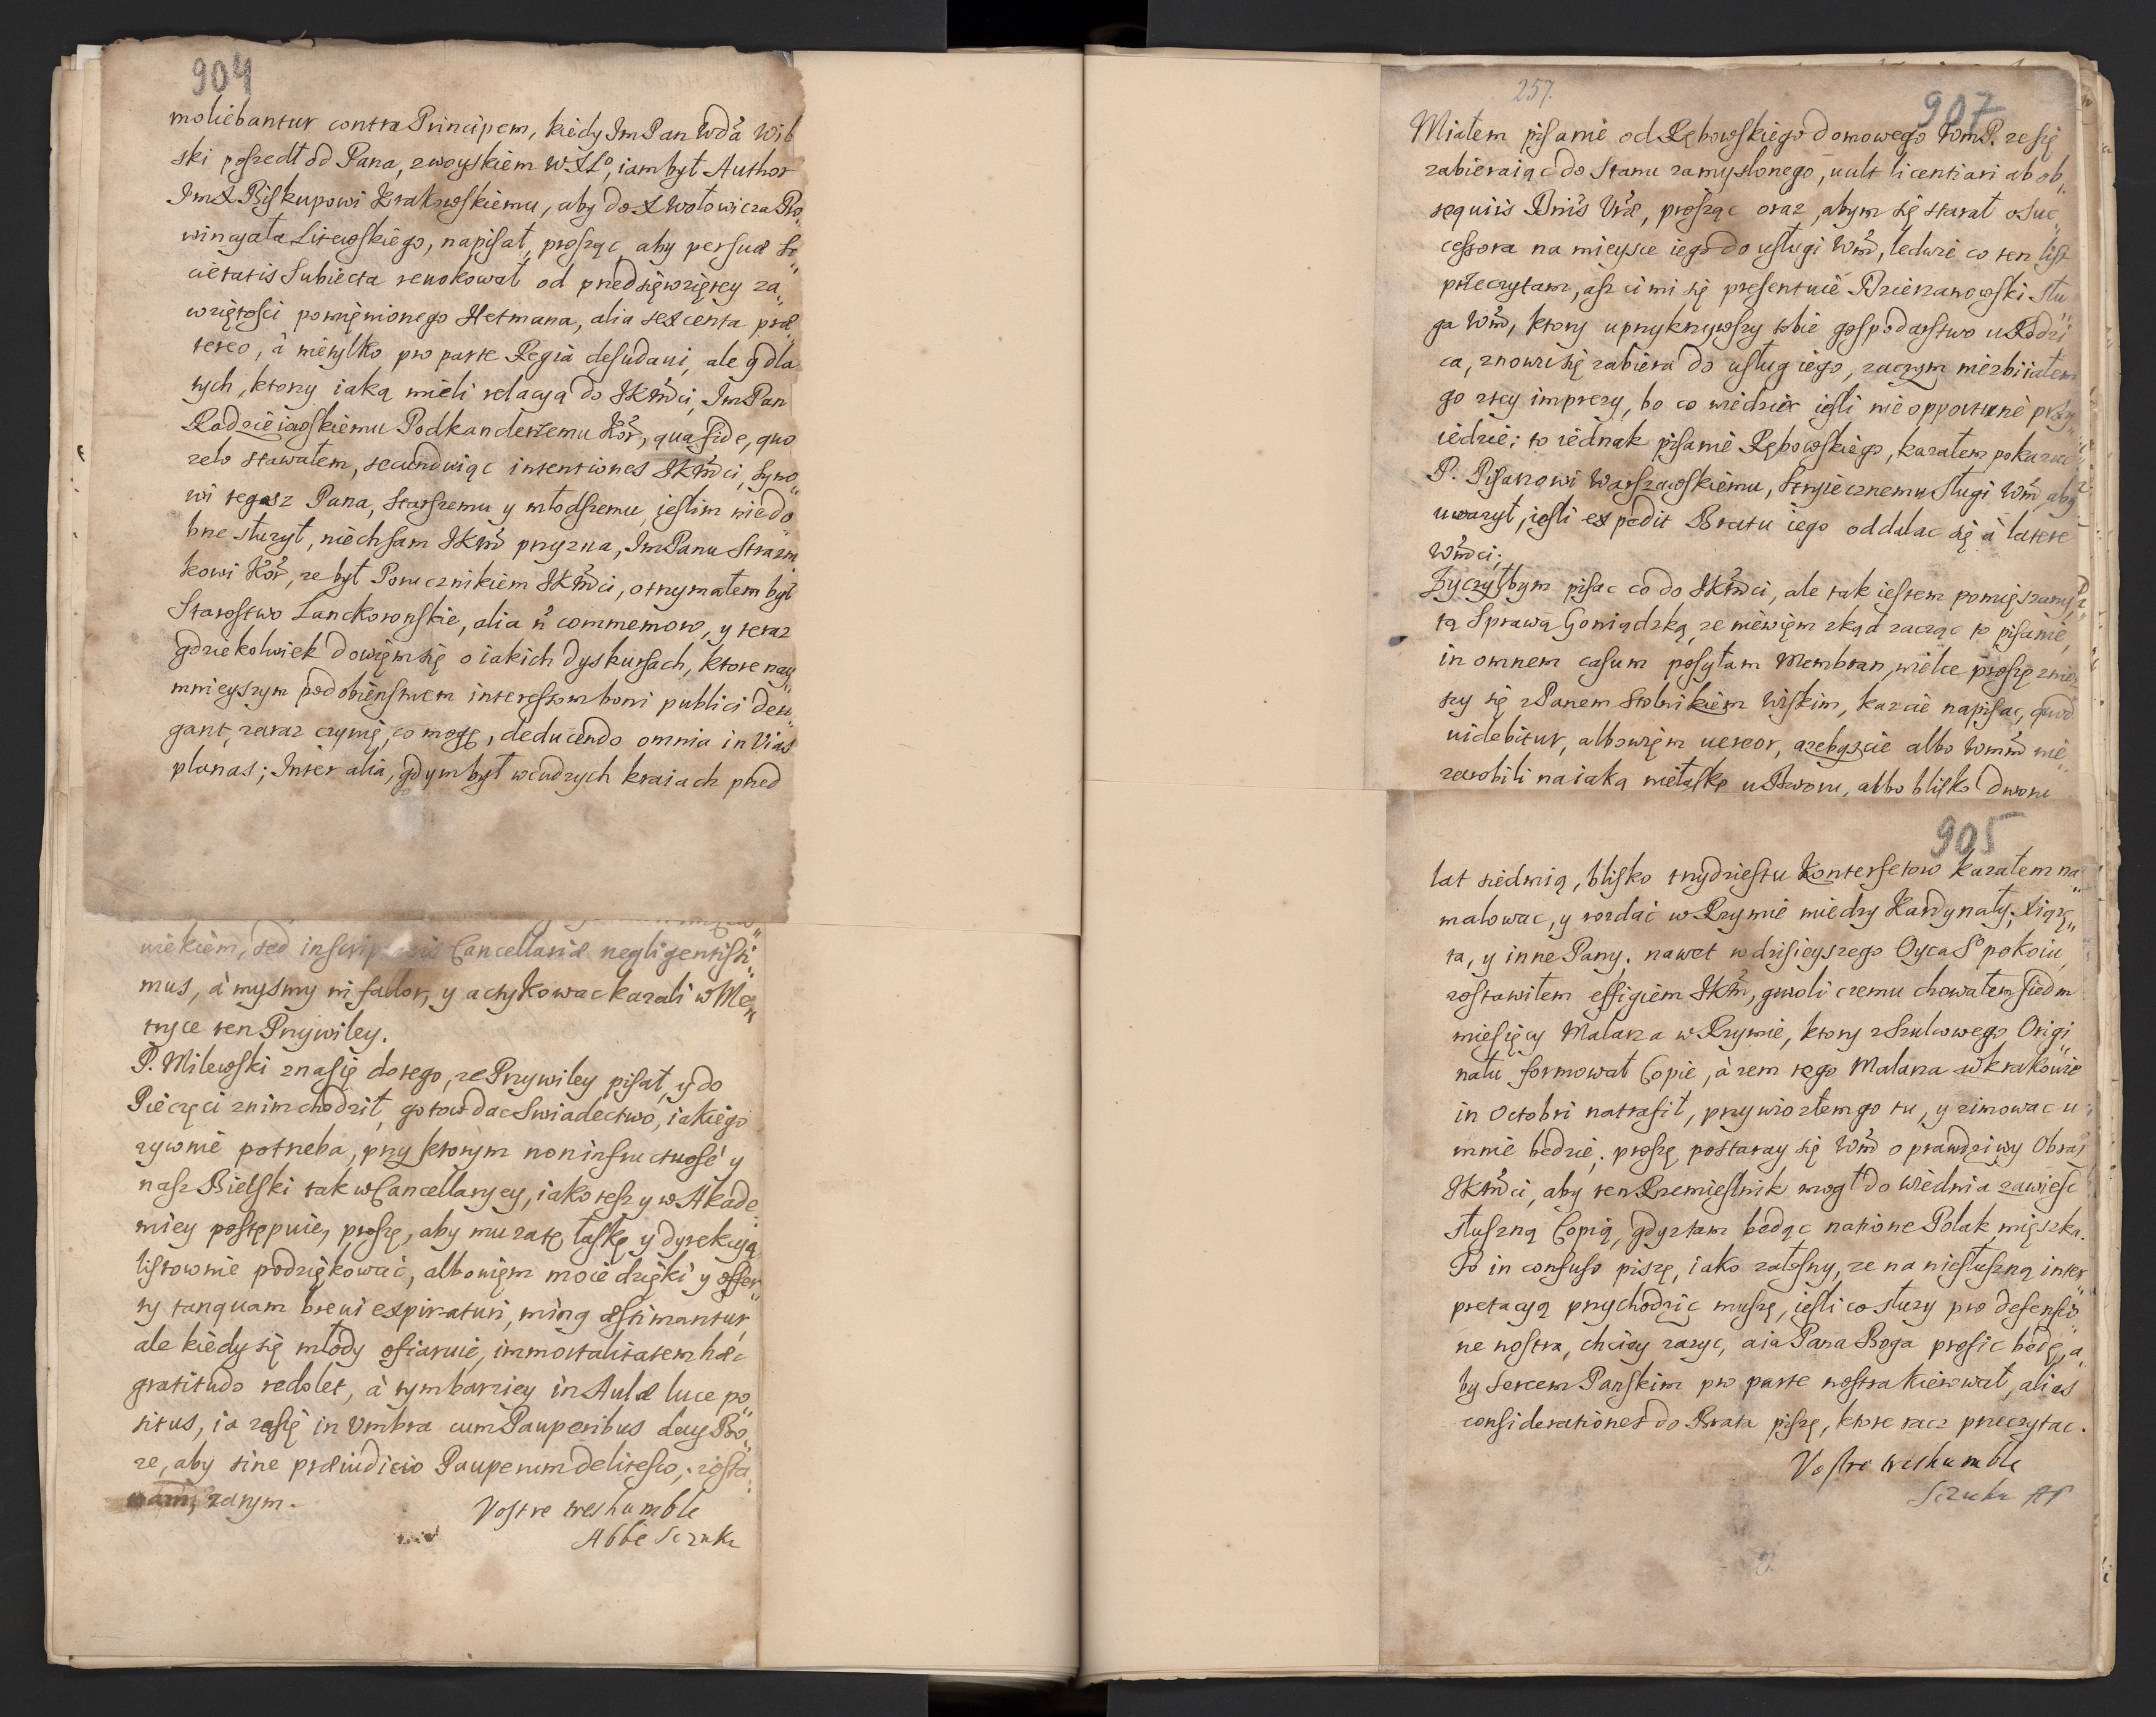 904
moliebantur contra Principem, kiedy Im Pan Wdã Wil
ski poszedł od Pana, z woyskiem WXLº, iam był Author
ImX Biskupowi Krakowskiemu, aby do X Wołowicza Pro„
wincyała Litewskiego, napisał, prosząc aby persua So„
cietatis Subiecta reuokował od przedsięwziętey za„
wziętości pomięnionego Hetmana, alia sexcenta præ„
tereo, à nietylko pro parte Regia desudaui, ale y dla
tych, ktorzy iaką mieli relacyą do JKMci, Im Pan
Radzieiowskiemu Podkanclerzemu Kor, qua fide, quo
zelo stawałem, secundwiąc intentiones JKMci, Syno„
wi tegosz Pana, Starszemu y młodszemu, jeslim niedo„
bne służył, niech sam JKM przyzna, Im Panu Strazni„
kowi Kor, ze był Porucznikiem JKMci, otrzymałem był
Starostwo Lanckoronskie, alia ñ commemoro, y teraz
gdziekolwiek dowięm się o iakich dyskursach, ktore nay„
mnieyszym podobieństwem interessom boni publici dero„
gant, zaraz czynię, co mogę, deducendo omnia in Vias
planas; Inter alia, gdym był w cudzych kraiach przed
wiekiem, sed in Cancellariæ negligentissi„
mus, à mysmy ni fallor, y actykowac kazali w Me„
tryce ten Przywiley.
P. Milewski zna się do tego, ze Przywiley pisał, y do
Pieczęci z nim chodził, gotow dac Swiadectwo, iakiego
zywnie potrzeba, przy ktorym non infructuosè y
nasz Bielski tak w Cancellaryey, iako tesz y w Akade„
miey postępuie, proszę, aby mu zatę łaskę y dyrekcyą
listownie podziękować, albowięm moie dzięki y offer„
ty tanquam breui expiraturi, minq æstimantur,
ale kiedy się młody ofiaruie, immortalitatem hæc
gratitudo redolet, à tym barziey in Aulæ luce po„
situs, ia zasię in Vmbra cum Pauperibus day Bo„
ze, aby sine præiudicio Pauperum delitesco, zosta„
wam, zatym.
Vostre tres humble
Abbé Sczuka
257.
907
Miałem pisanie od Rębowskiego domowego WmP. ze się
zabieraiąc do Stanu zamyslonego, uult licentiari ab ob„
sequiis Dnis Vræ, prosząc oraz, abym się starał o Suc„
cessora na mieysce iego do usługi Wm, ledwie co ten list
przeczytam, asz ci mi się presentuie Dzierzanowski Słu„
ga Wm, ktory uprzykrzywszy sobie gospodarstwo u Rodzi„
ca, znowu się zabiera do usług iego, zaczym niezbiiałem
go z tey imprezy, bo co wiedziec iesli nie opportunè przy„
iedzie; to iednak pisanie Rębowskiego, kazałem pokazac
P. Pisarzowi Warszawskiemu, Stryiecznemu Sługi Wm, aby
uwazył, iesli expedit Bratu iego oddalac się à latere
Wmci;
Zyczyłbym pisac co do JKMci, ale tak iestem pomięszany
tą Sprawą Goniądzką, ze niewięm zkąd zacząc to pisanie,
in omnem casum posyłam Membran, wielce proszę znio„
szy się z Panem Stolnikiem Wiskim, kazcie napisac, quod
uidebitur, albowięm uereor, azebyscie albo Wmm nie„
zarobili na iaką niełaskę u Dworu, albo blisko Dworu
905
lat siedmią, blisko trzydziestu Konterfetow kazałem na„
malowac, y rozdać w Rzymie miedzy Kardynały, Xiążę„
ta, y inne Pany, nawet w dzisieyszego Oyca Sº pokoiu,
zostawiłem effigiem JKM, gwoli czemu chowałem siedm
miesięcy Malarza w Rzymie, ktory z Szulcowego Origi„
nału formował Copie, à zem tego Malarza w Krakowie
in Octobri natrafił, przywiozłem go tu, y zimowac u
mnie bedzie; proszę postaray się Wm o prawdziwy Obraz
JKMci, aby ten Rzemieslnik mogł do Wiednia zawiesć
słuszną Copią, gdysz tam bedąc natione Polak mięszka.
To in confuso piszę, iako załosny, ze na niesłuszną inter„
pretacyą przychodzic muszę, iesli co słuzy pro defensio„
ne nostra, chciey zazyc, a ia Pana Boga prosic bedę, a„
by Sercem Panskim pro parte nostra kierował, alias
considerationes do Brata piszę, ktore racz przeczytac.
Vostre tres humble
Sczuka